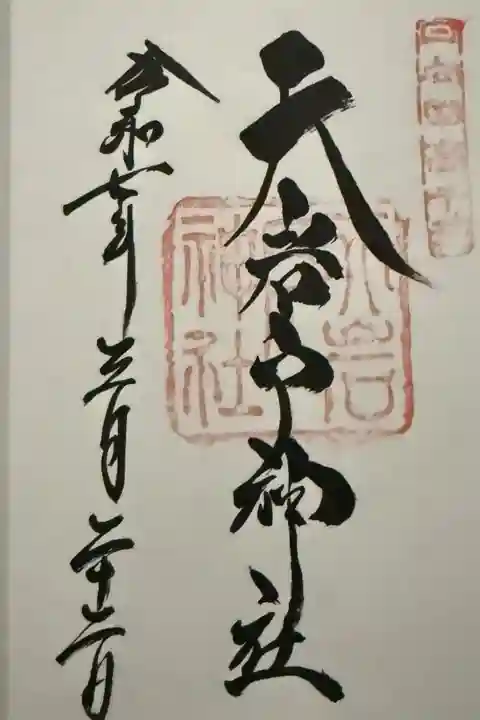 天岩戸神社
令和七年三月二十二日
天岩戸神社